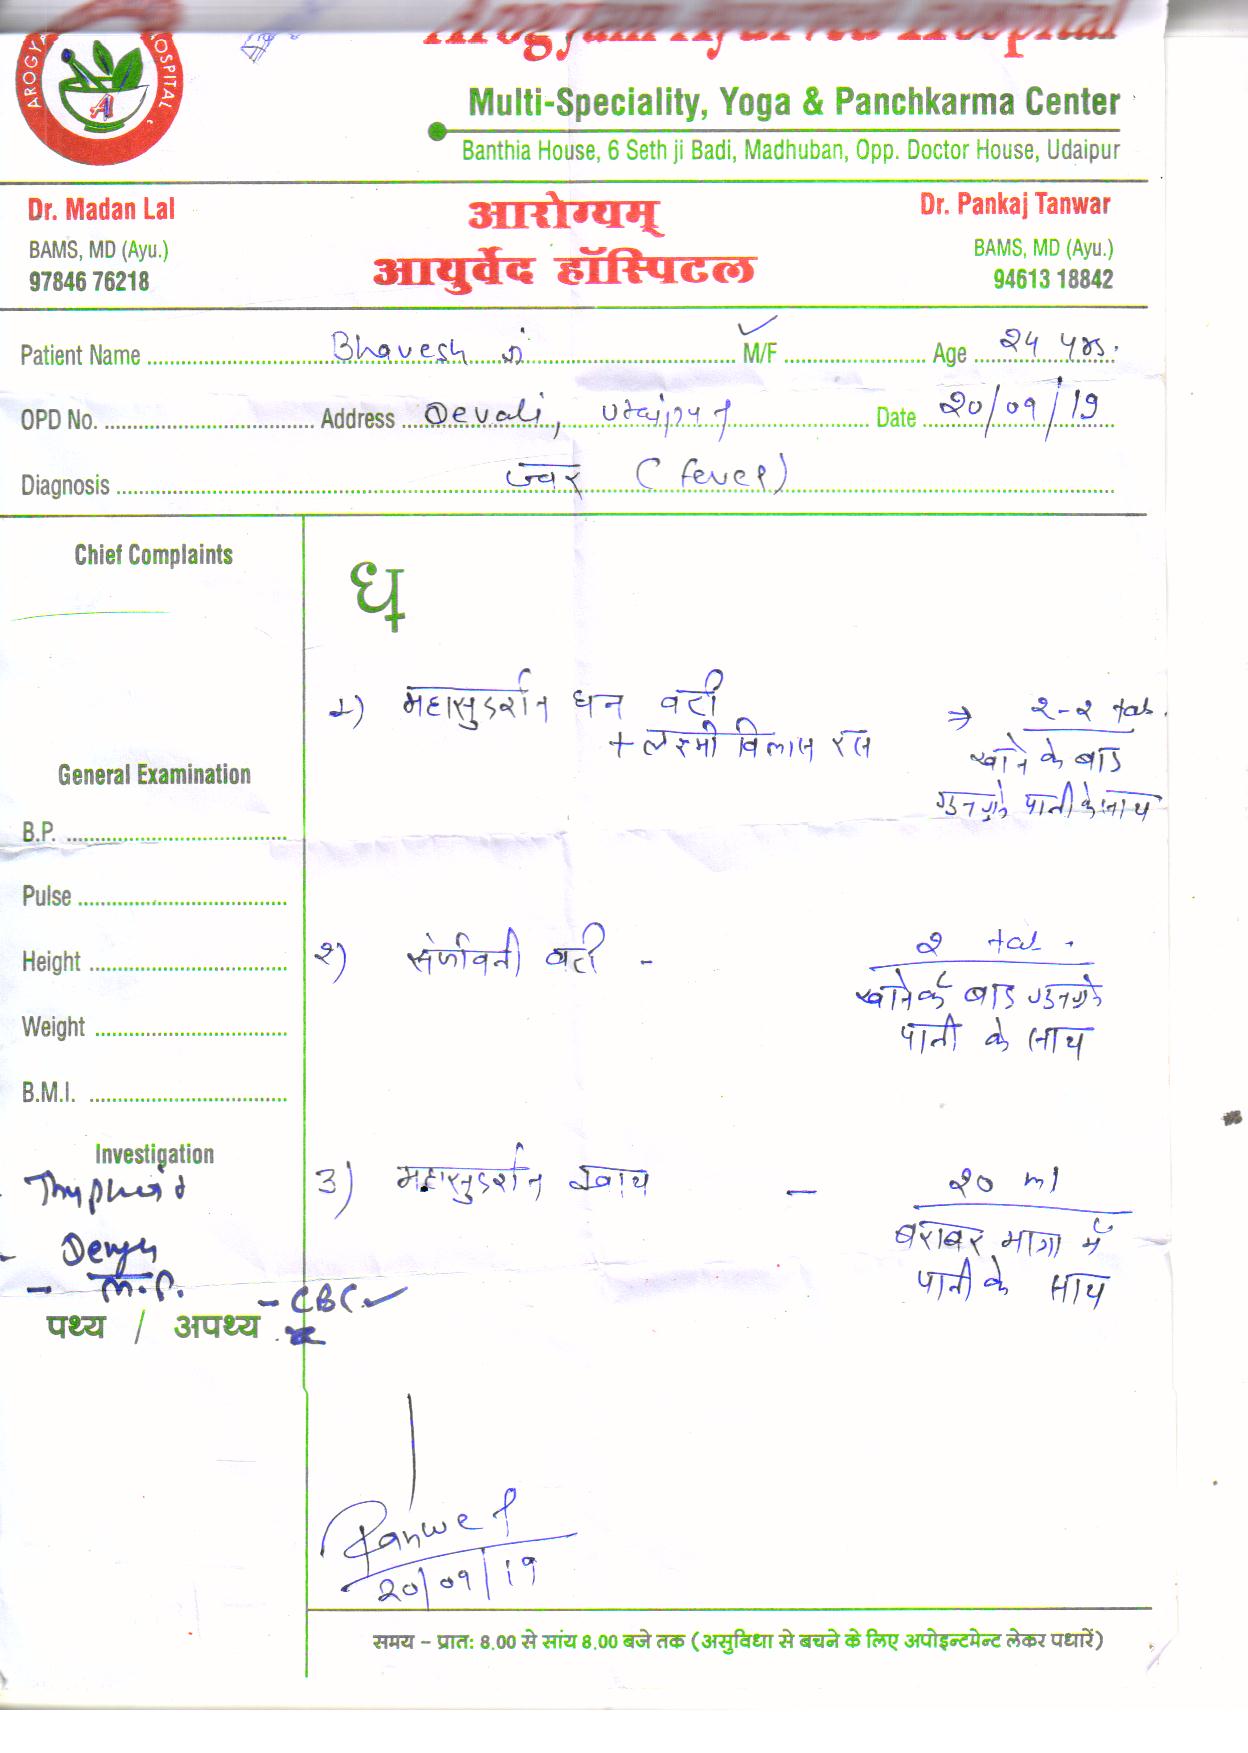 Arogyam Ayurved Hospital
AROGYA HOSPITAL
A
Multi-Speciality, Yoga & Panchkarma Center
Banthia House, 6 Seth ji Badi, Madhuban, Opp. Doctor House, Udaipur
Dr. Madan Lal
BAMS, MD (Ayu.)
97846 76218
आरोग्यम्
आयुर्वेद हॉस्पिटल
Dr. Pankaj Tanwar
BAMS, MD (Ayu.)
94613 18842
Patient Name Bhavesh जी M/F ✓ Age २४ yrs.
OPD No. Address Devali, Udaipur Date २०/०९/१९
Diagnosis ज्वर (fever)
Chief Complaints
१) महासुदर्शन घन वटी
+ लक्ष्मी विलास रस
⇒ २-२ tab.
खाने के बाद
गुनगुने पानी के साथ
General Examination
B.P.
Pulse
Height
Weight
B.M.I.
२) संजीवनी वटी - २ tab.
खाने के बाद गुनगुने
पानी के साथ
Investigation
- Thyphoid
- Dengu
- M.P.
- CBC ✓
३) महासुदर्शन क्वाथ - २० ml
बराबर मात्रा में
पानी के साथ
पथ्य / अपथ्य
२०/०९/१९
समय - प्रातः 8.00 से सांय 8.00 बजे तक (असुविधा से बचने के लिए अपोइन्टमेन्ट लेकर पधारें)